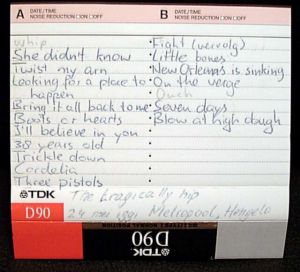 A DATE/TIME
NOISE REDUCTION □ ON □ OFF
B DATE/TIME
NOISE REDUCTION □ ON □ OFF
whip
She didn't know
Twist my arm
Looking for a place to
happen
Bring it all back to me
Boots or hearts
I'll believe in you
38 years old
Trickle down
Cordelia
Three pistols
Fight (vervolg)
Little bones
New Orleans is sinking
On the verge
Ouch
Seven days
Blow at high dough
TDK
D90
The tragically hip
24 mei 1991 Metropool, Hengelo
TDK
D90
NORMAL POSITION